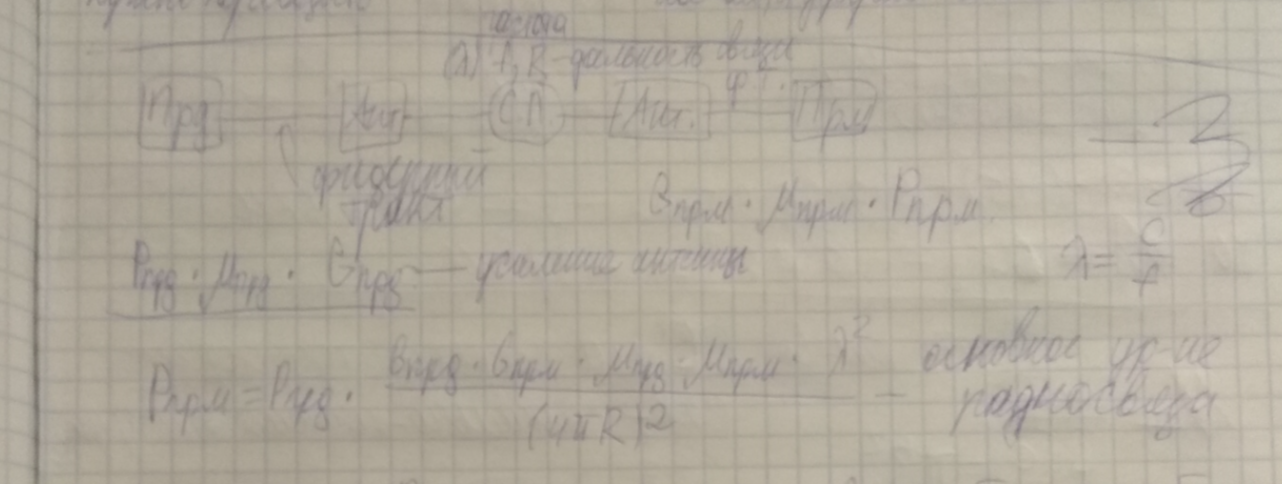 частота
(λ) f, R - дальность связи
Прд Ант СП Ант. ф.т. Прм
фидерный
тракт
Gпрм · Mпрм · Pпрм.
Pпрд · Mпрд · Gпрд — усиление антенны
λ = c/f
Pпрм = Pпрд · (Gпрд · Gпрм · Mпрд · Mпрм · λ²)/(4πR)² — основное ур-ие
радиосвязи